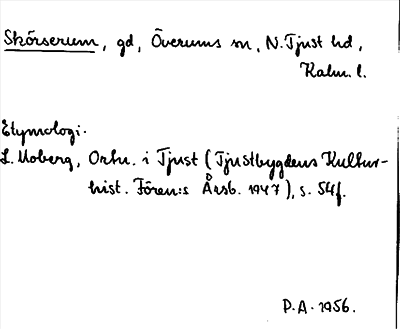 Skörserum, gd, Överums sn, N. Tjust hd,
Kalm. l.
Etymologi.
L. Moberg, Ortn. i Tjust (Tjustbygdens Kultur-
hist. Fören:s Årsb. 1947), s. 54f.
P.A. 1956.